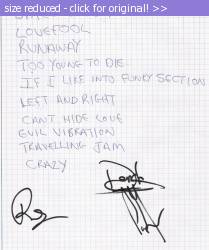 size reduced - click for original! >>
LOVEFOOL
RUNAWAY
TOO YOUNG TO DIE
IF I LIKE INTO FUNKY SECTION
LEFT AND RIGHT
CANT HIDE LOVE
EVIL VIBRATION
TRAVELLING JAM
CRAZY